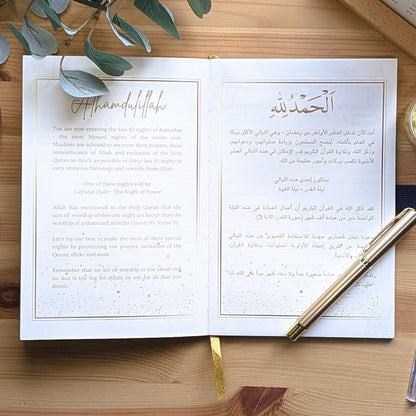 Alhamdulillah
You are now entering the last 10 nights of Ramadan
- the most blessed nights of the entire year.
Muslims are advised to increase their prayers, duas,
remembrance of Allah and recitation of the Holy
Quran as much as possible in these last 10 nights to
earn immense blessings and rewards from Allah.
One of these nights will be
Laylatul Qadr - The Night of Power
Allah has mentioned in the Holy Quran that the
acts of worship of this one night are better than the
worship of a thousand months (Surah 97, Verse 3).
Let's try our best to make the most of these special
nights by prioritizing our prayers, recitation of the
Quran, dhikr and duas.
Remember that no act of worship is too small and
no dua is too big for Allah, so ask for all that you
desire.
الْحَمْدُ لِلَّهِ
أنت الآن تدخل العشر الأواخر من رمضان - وهي الليالي الأكثر بركة
في العام بأكمله. يُنصح المسلمون بزيادة صلواتهم، ودعواتهم،
وذكر الله، وتلاوة القرآن الكريم قدر الإمكان في هذه الليالي العشر
الأخيرة لكسب بركات وأجور عظيمة من الله.
ستكون إحدى هذه الليالي
ليلة القدر - ليلة القوة
لقد ذكر الله في القرآن الكريم أن أعمال العبادة في هذه الليلة
الواحدة خير من عبادة ألف شهر (سورة القدر، الآية 3).
دعونا نبذل قصارى جهدنا للاستفادة القصوى من هذه
عن طريق إعطاء الأولوية لصلواتنا، وتلاوة القرآن،
والأدعية.
عبادة صغيرة جداً ولا دعاء كبير جداً على الله، لذا